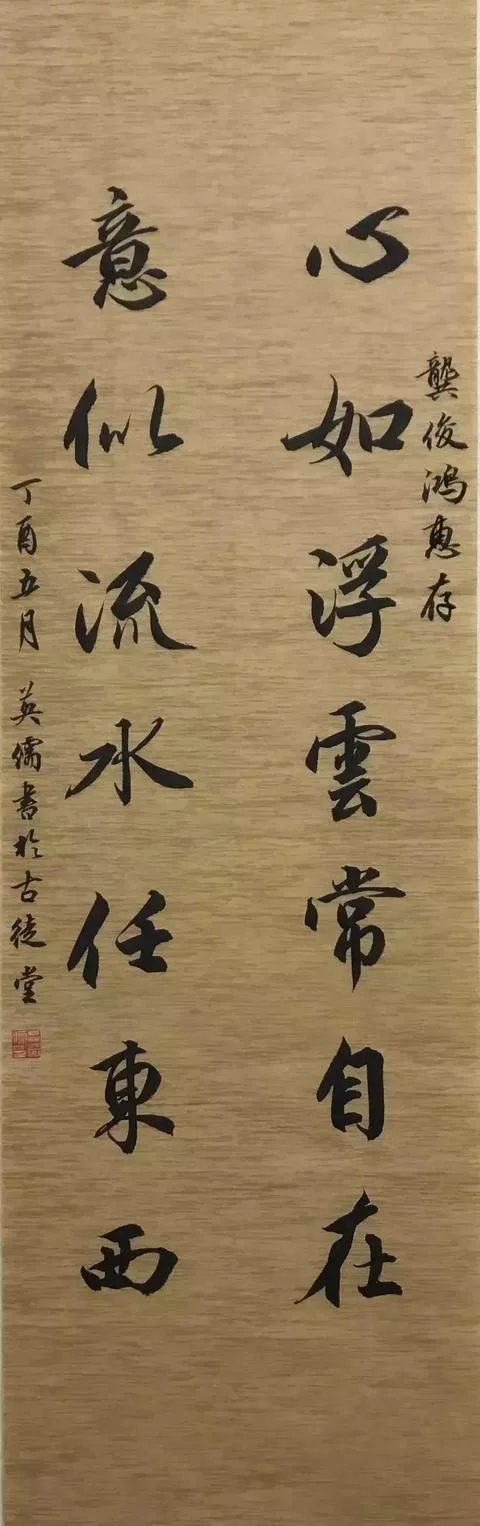 龔俊鴻惠存
心如浮雲常自在
意似流水任東西
丁酉五月 英儒書於古徒堂